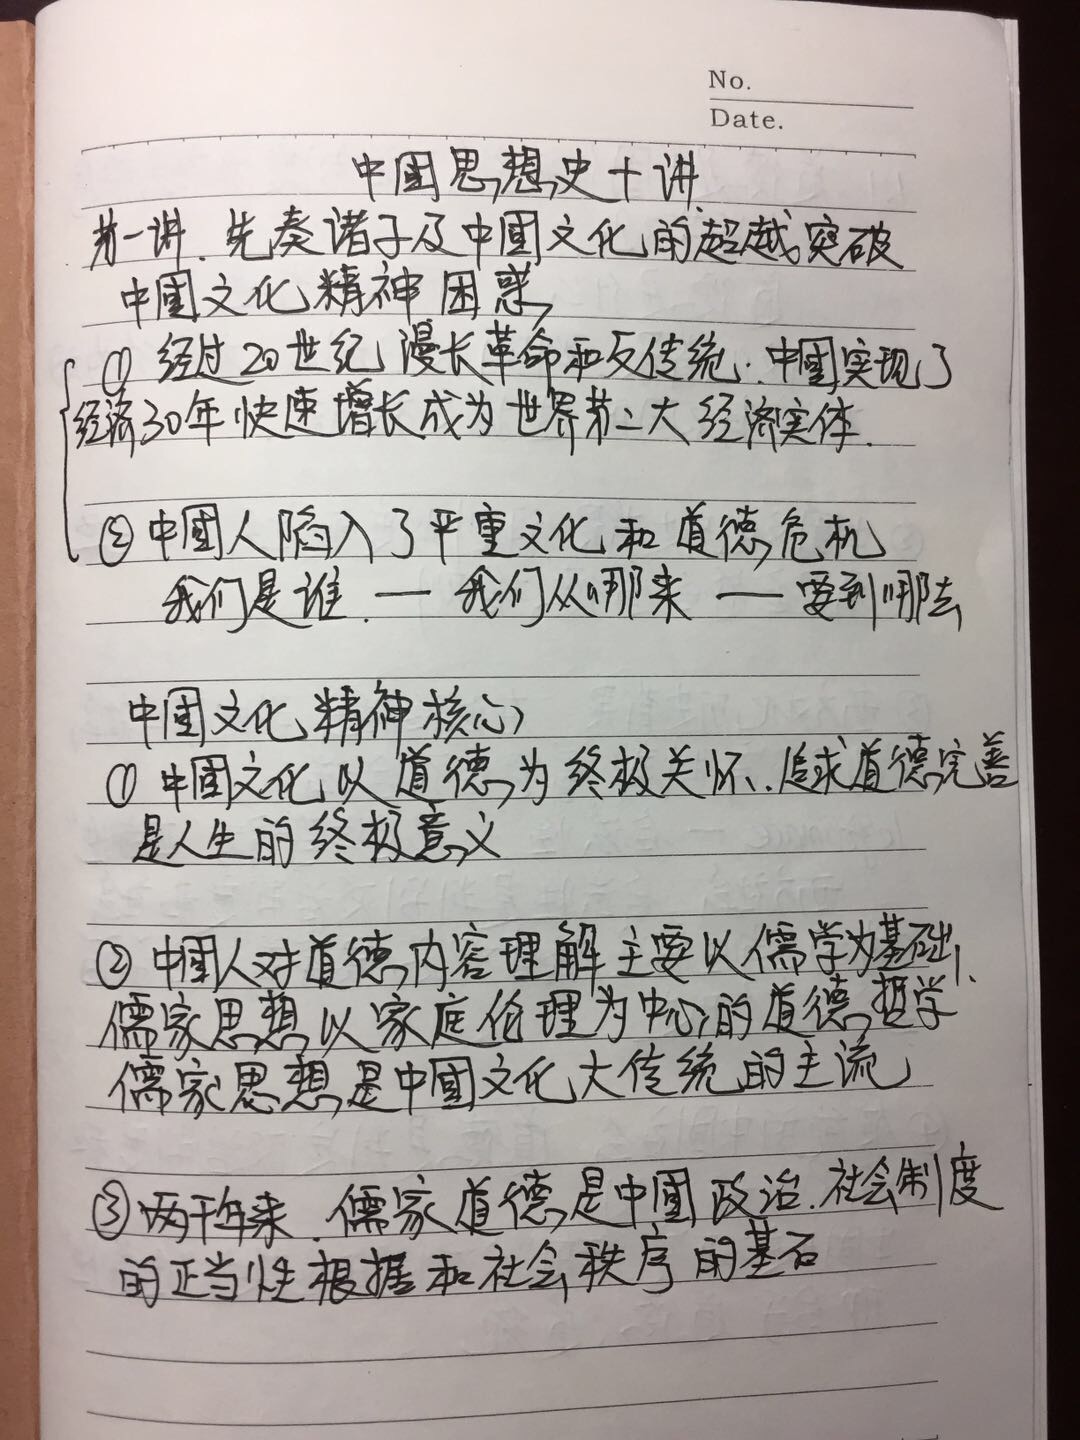 No.
Date.
中国思想史十讲
第一讲.先秦诸子及中国文化的超越突破
中国文化精神困惑
① 经过20世纪漫长革命和反传统.中国实现了
经济30年快速增长成为世界第二大经济实体.
② 中国人陷入了严重文化和道德危机
我们是谁.—我们从哪来—要到哪去
中国文化精神核心
① 中国文化以道德为终极关怀.追求道德完善
是人生的终极意义
② 中国人对道德内容理解主要以儒学为基础、
儒家思想以家庭伦理为中心的道德哲学
儒家思想是中国文化大传统的主流
③ 两千年来.儒家道德是中国政治.社会制度
的正当性根据和社会秩序的基石